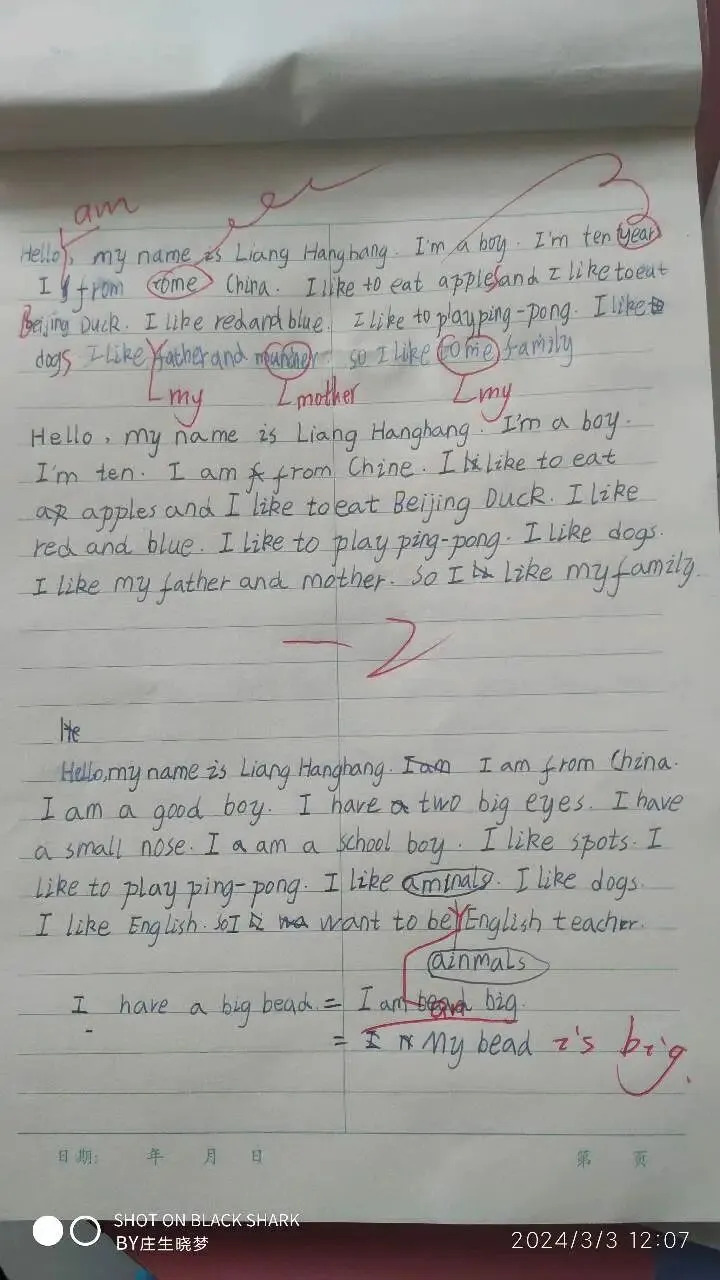 am
Hello, my name is Liang Hanghang. I'm a boy. I'm ten year
I from come China. I like to eat apples and I like to eat
Beijing Duck. I like red and blue. I like to play ping-pong. I like
dogs I like father and muncher. so I like come family
my mother my
Hello, my name is Liang Hanghang. I'm a boy.
I'm ten. I am from Chine. I like to eat
apples and I like to eat Beijing Duck. I like
red and blue. I like to play ping-pong. I like dogs.
I like my father and mother. So I like my family.
-2
He
Hello, my name is Liang Hanghang. I am I am from China.
I am a good boy. I have a two big eyes. I have
a small nose. I a am a school boy. I like spots. I
like to play ping-pong. I like aminals. I like dogs.
I like English. so I want to be English teacher.
ainmals
I have a big bead. = I am bead big.
= I My bead i's big.
日期: 年 月 日 第 页
SHOT ON BLACK SHARK
BY庄生晓梦
2024/3/3 12:07